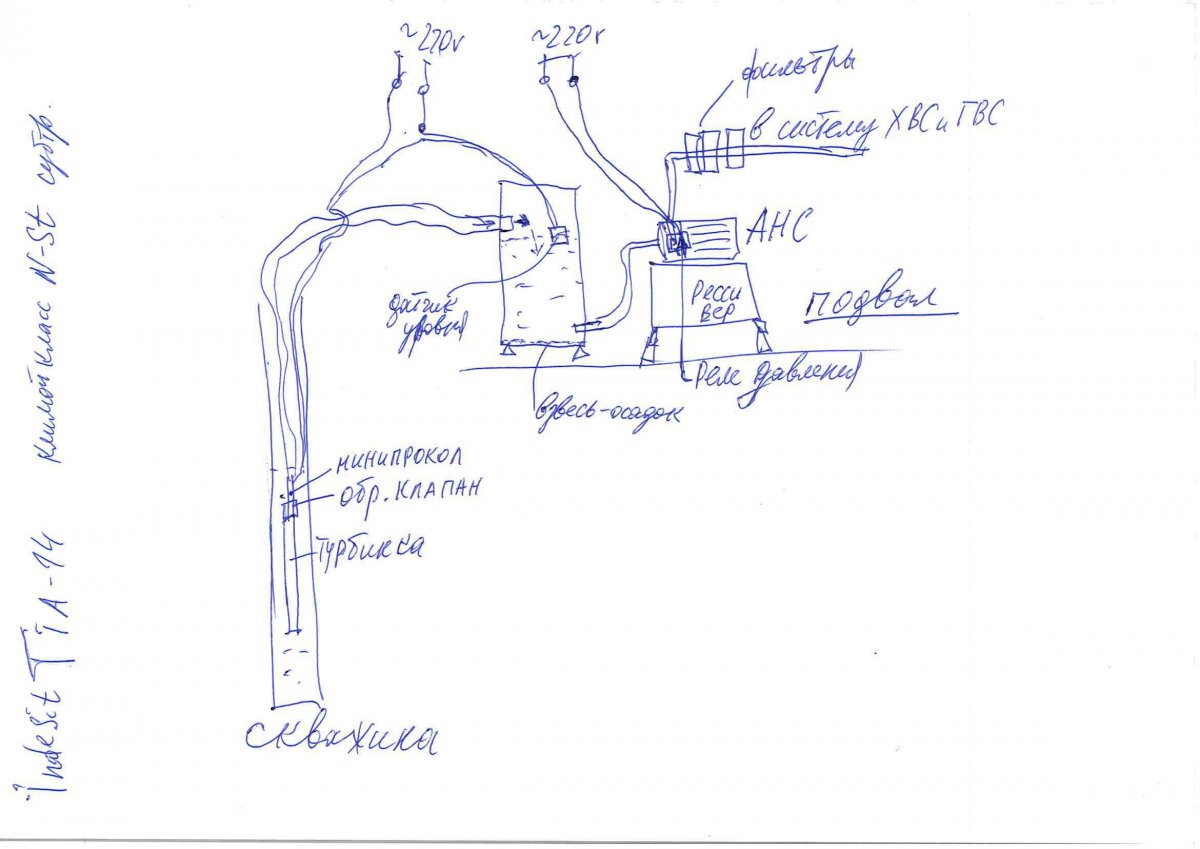 ~220v
~220v
фильтры
в систему ХВС и ГВС
АНС
РД
Ресси
вер
подвал
датчик
уровня
Реле давления
взвесь-осадок
минипрокол
обр. клапан
Турбинка
скважина
IndeSit TiA-14 климат класс N-St субтр.